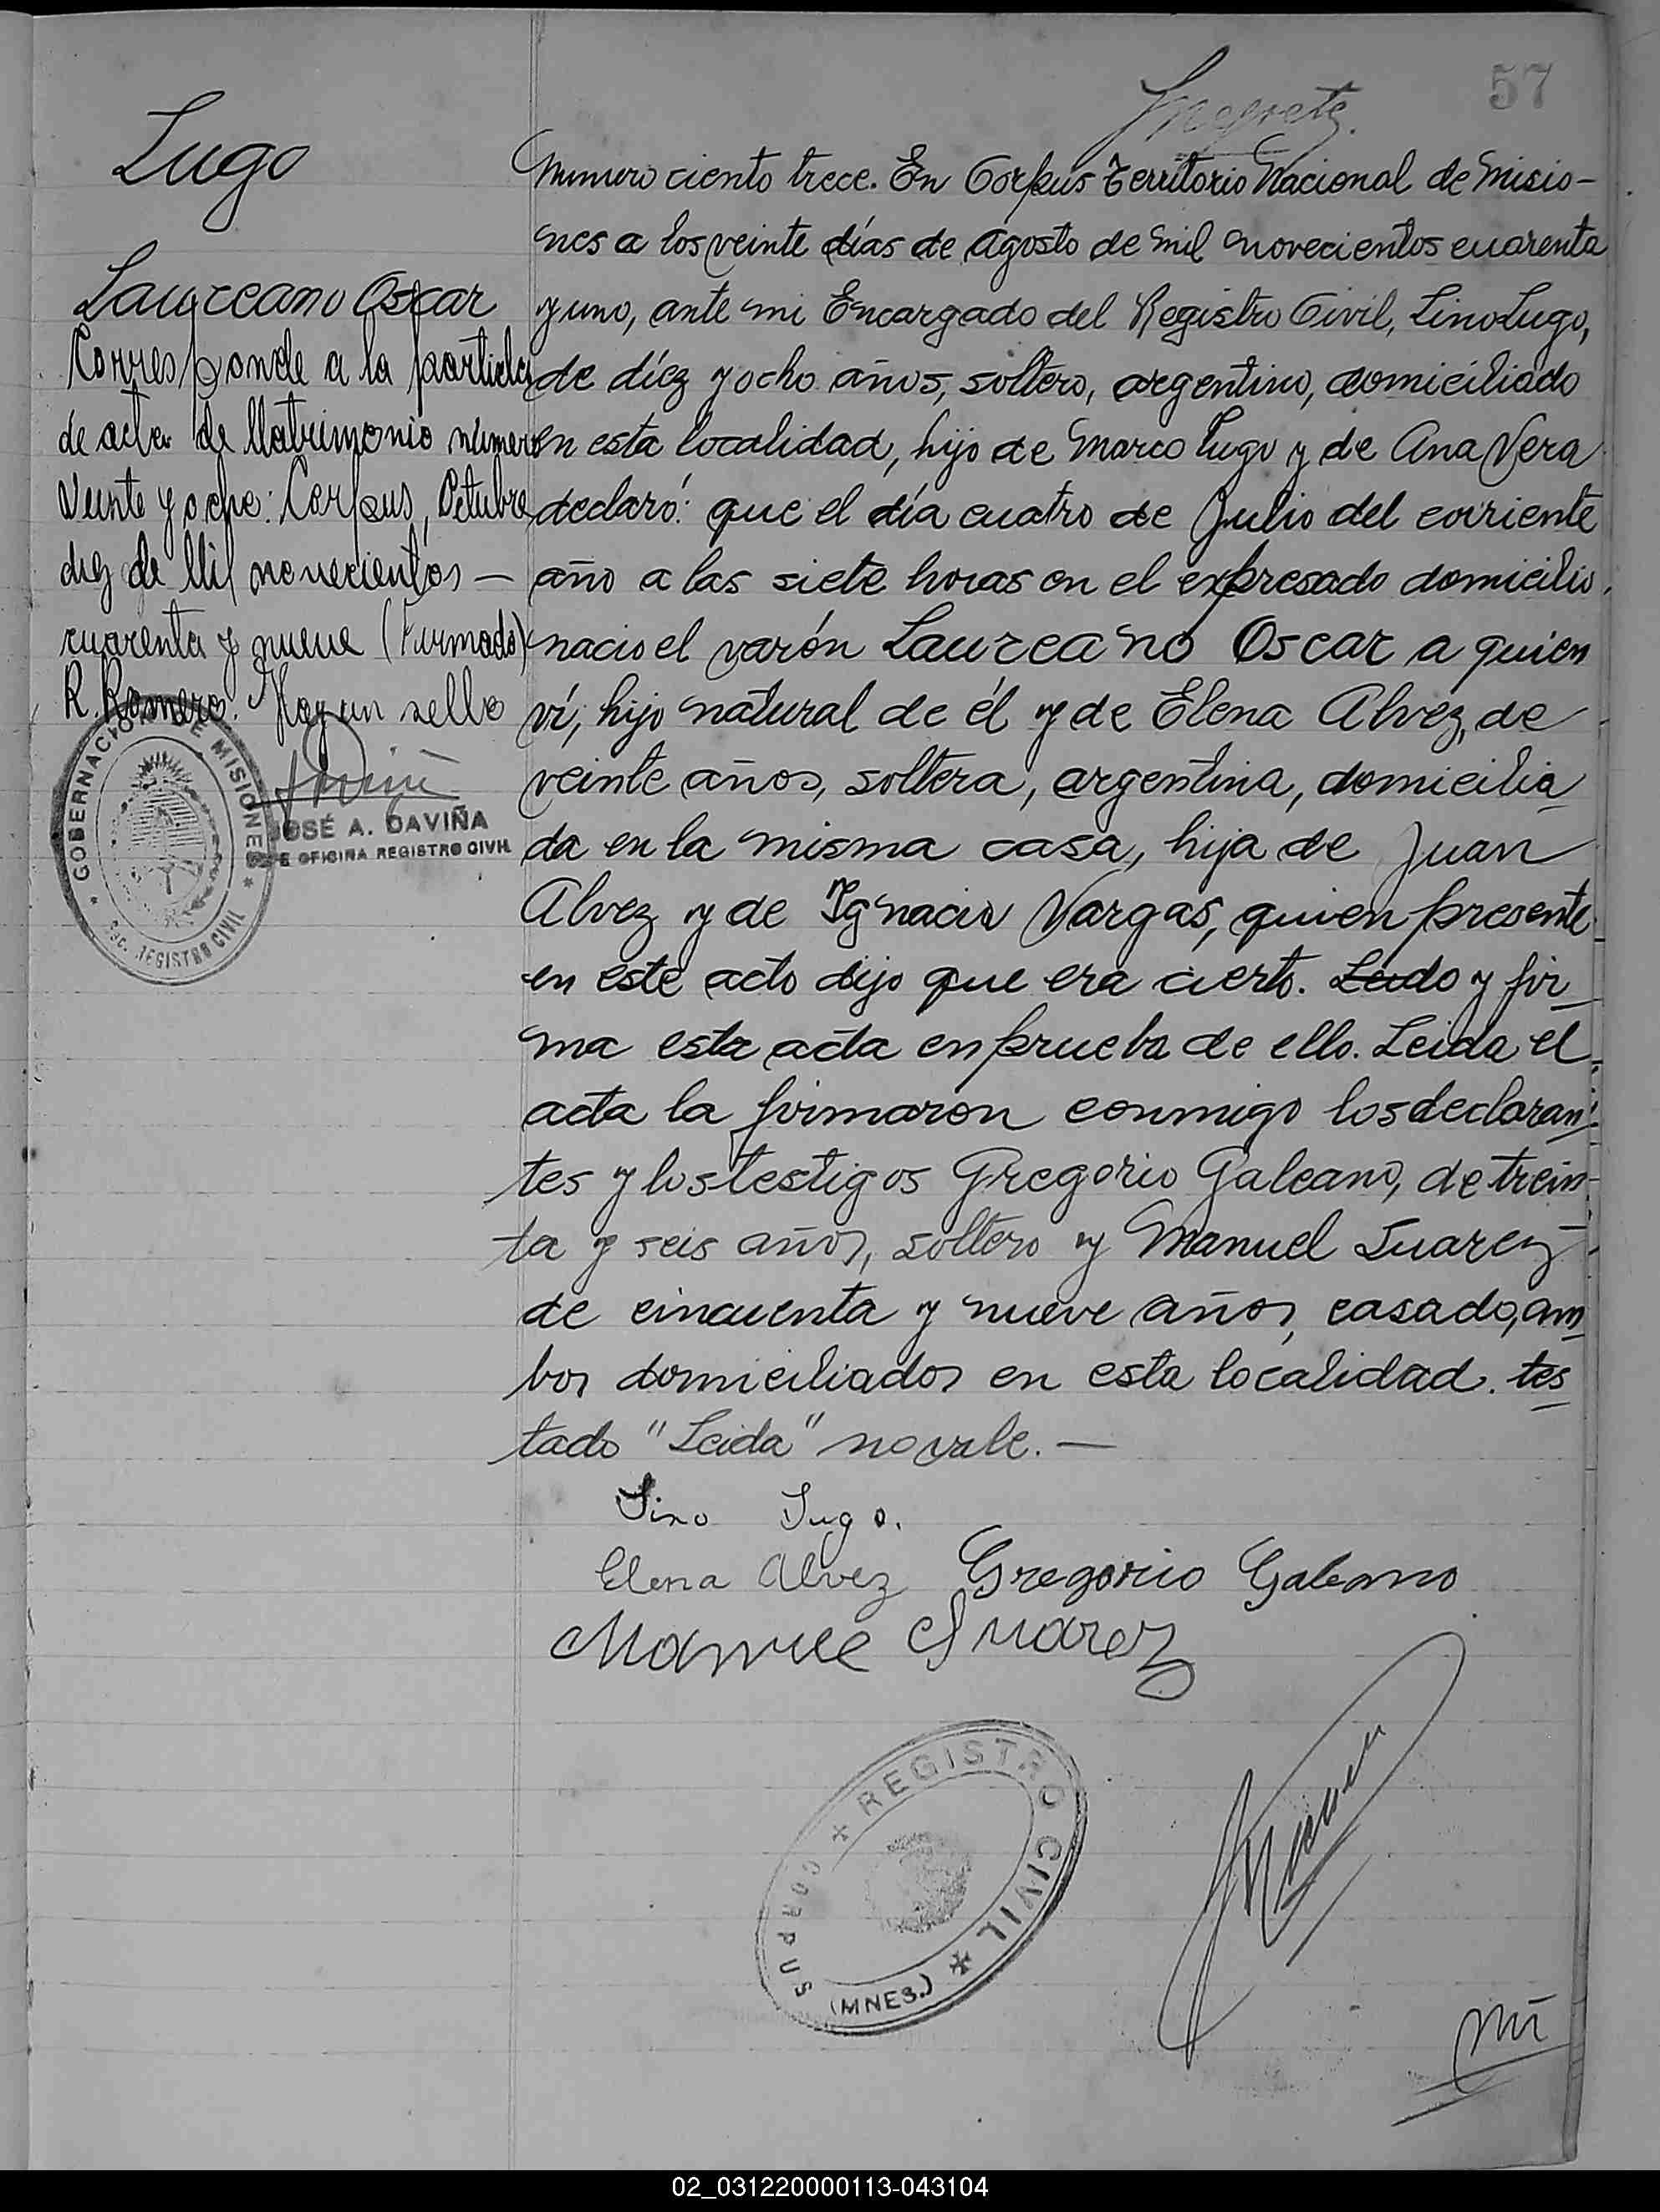 57
Lugo
Laureano Oscar
Corresponde a la partida
de acta de Matrimonio número
Veinte y ocho: Corpus, Octubre
diez de Mil novecientos —
cuarenta y nueve (Firmado)
R. Romero. Hay un sello
GOBERNACION DE MISIONES
SEC. REGISTRO CIVIL
JOSÉ A. DAVIÑA
JEFE OFICINA REGISTRO CIVIL
Numero ciento trece. En Corpus Territorio Nacional de Misio-
nes a los veinte días de agosto de mil novecientos cuarenta
y uno, ante mi Encargado del Registro Civil, Lino Lugo,
de díez y ocho años, soltero, argentino, domiciliado
en esta localidad, hijo de Marco Lugo y de Ana Vera
declaró: que el día cuatro de Julio del corriente
año a las siete horas en el expresado domicilio
nacio el varón Laureano Oscar a quien
ví, hijo natural de él y de Elena Alvez, de
veinte años, soltera, argentina, domicilia
da en la misma casa, hija de Juan
Alvez y de Ignacia Vargas, quien presente
en este acto dijo que era cierto. Leido y fir
ma esta acta en prueba de ello. Leida el
acta la firmaron conmigo los declaran-
tes y los testigos Gregorio Galeano, de trein-
ta y seis años, soltero y Manuel Suarez
de cincuenta y nueve años, casado, am
bos domiciliados en esta localidad. tes
tado "Leida" no vale. —
Lino Lugo.
Elena Alvez Gregorio Galeano
Manuel Suarez
REGISTRO CIVIL
CORPUS (MNES.)
02_031220000113-043104